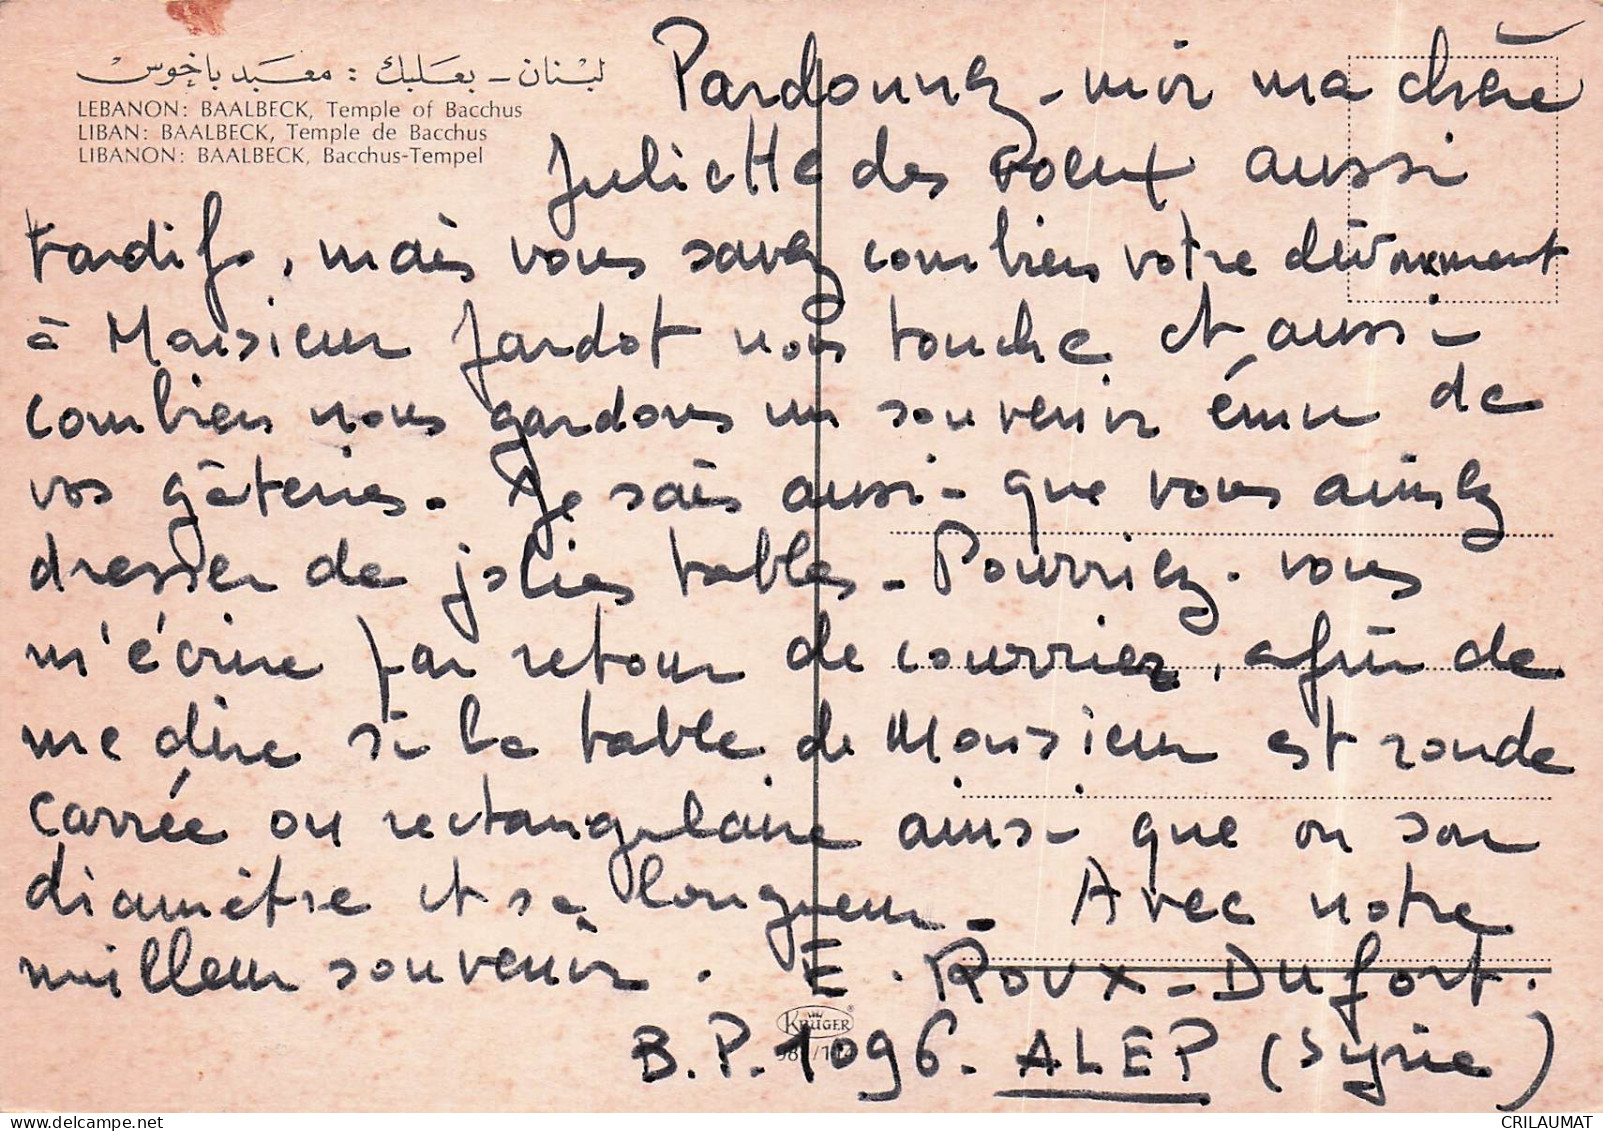 لبنان - بعلبك : معبد باخوس
LEBANON: BAALBECK, Temple of Bacchus
LIBAN: BAALBECK, Temple de Bacchus
LIBANON: BAALBECK, Bacchus-Tempel
Pardonnez-moi ma chère
Juliette des voeux aussi
tardifs, mais vous savez combien votre dévouement
à Monsieur Jardot nous touche et aussi
combien nous gardons un souvenir ému de
vos gâteries. Je sais aussi que vous aimez
dresser de jolies tables - Pourriez-vous
m'écrire par retour de courrier, afin de
me dire si la table de Monsieur est ronde
carrée ou rectangulaire ainsi que ou son
diamètre et sa longueur - Avec notre
meilleur souvenir. E. Roux-Dufort.
B.P. 1096 - ALEP (Syrie)
KRÜGER
CRILAUMAT